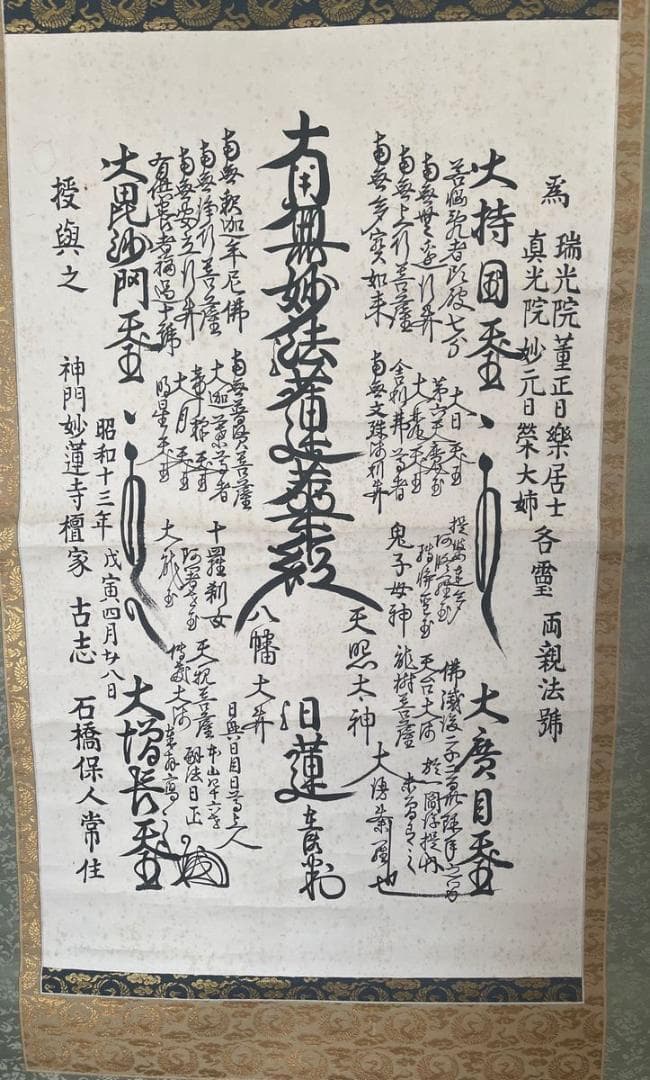 為
瑞光院董正日樂居士
真光院妙元日榮大姉
各霊 両親法號
大持国天王
大廣目天王
若悩乱者頭破七分
南無無辺行菩薩
南無上行菩薩
南無多宝如来
大日天王
第六天魔王
大梵天王
舎利弗尊者
南無文殊師利菩薩
提婆達多
阿修羅王
転輪聖王
鬼子母神
天照太神
佛滅後二千二百三十余年之間
一閻浮提之内
未曾有之
大漫荼羅也
天台大師
龍樹菩薩
南無妙法蓮華経
日蓮
在御判
八幡大菩薩
南無釈迦牟尼佛
南無浄行菩薩
南無安立行菩薩
有供養者福過十號
南無普賢菩薩
大迦葉尊者
帝釈天王
大月天王
明星天王
十羅刹女
阿闍世王
大龍王
天親菩薩
傳教大師
日興日目日道上人
本山四十六世
嗣法日正
大毘沙門天王
大増長天王
昭和十三年戊寅四月廿八日
授與之
神門妙蓮寺檀家 古志 石橋保人常住